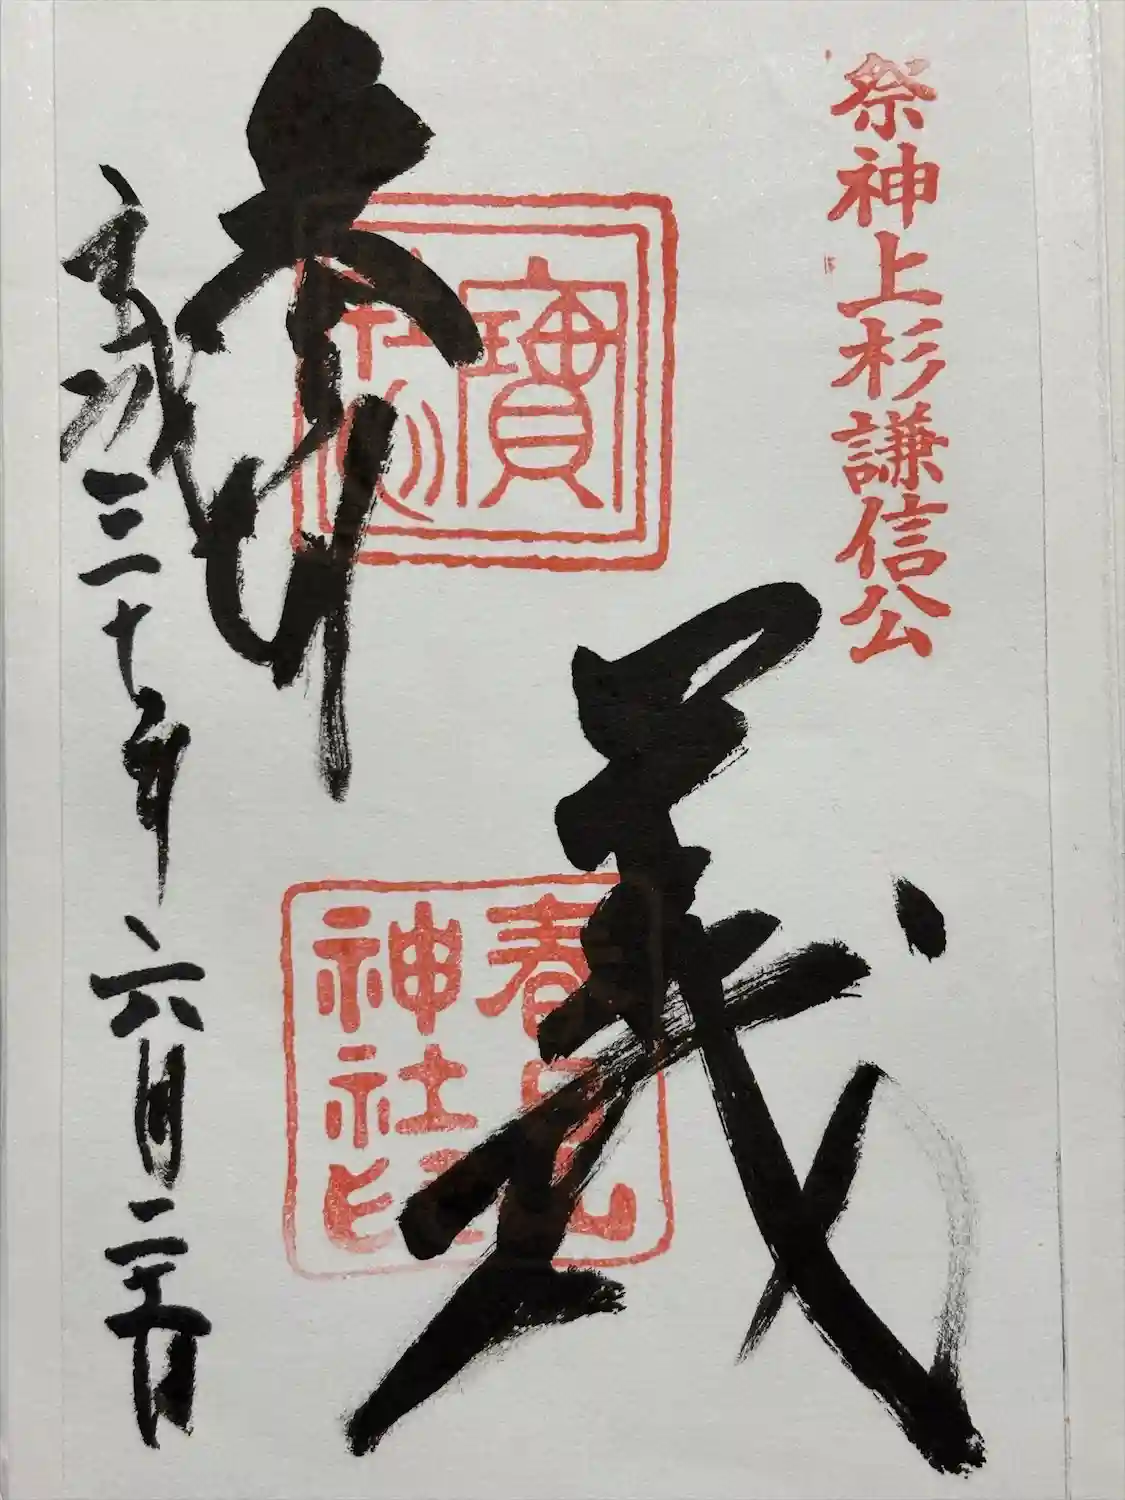 祭神上杉謙信公
義
奉拝
寶
春日山
神社印
平成三十年六月二十日